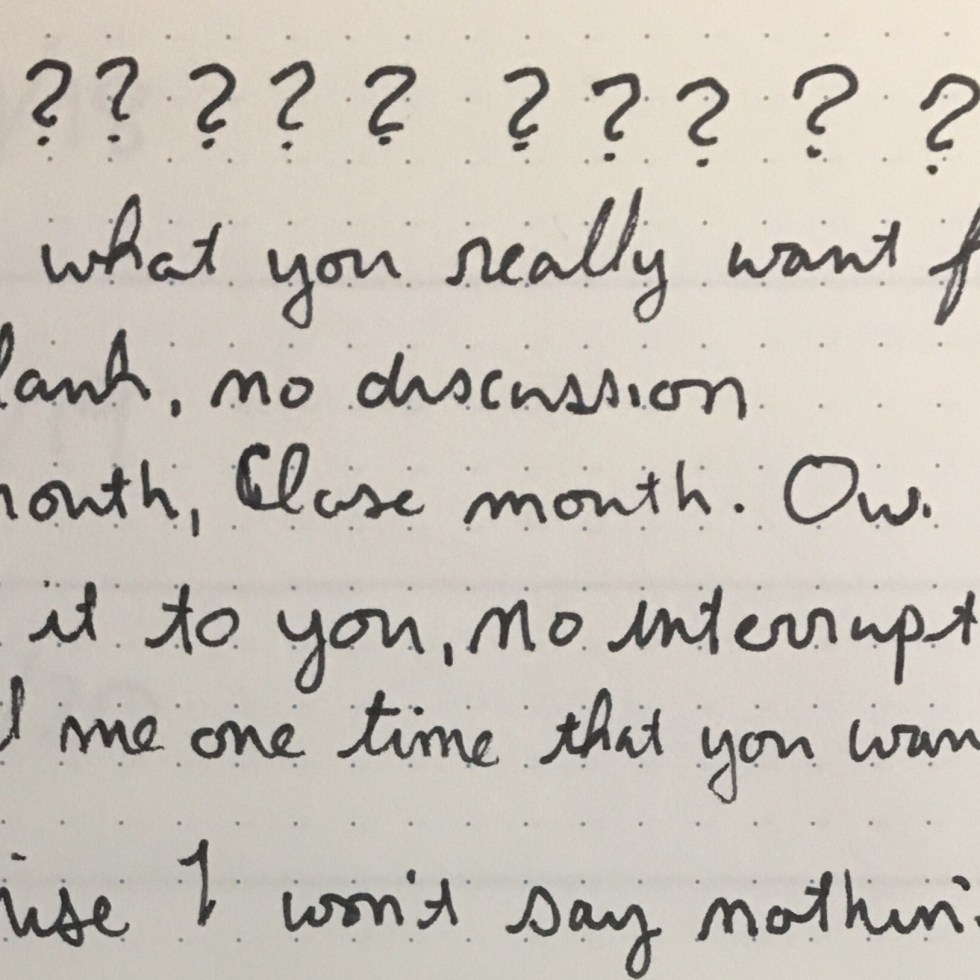 ? ? ? ? ? ? ? ? ? ?
what you really want f
lank, no discussion
outh, Close mouth. Ow.
it to you, no interrupt
me one time that you wan
ise I won't say nothin'